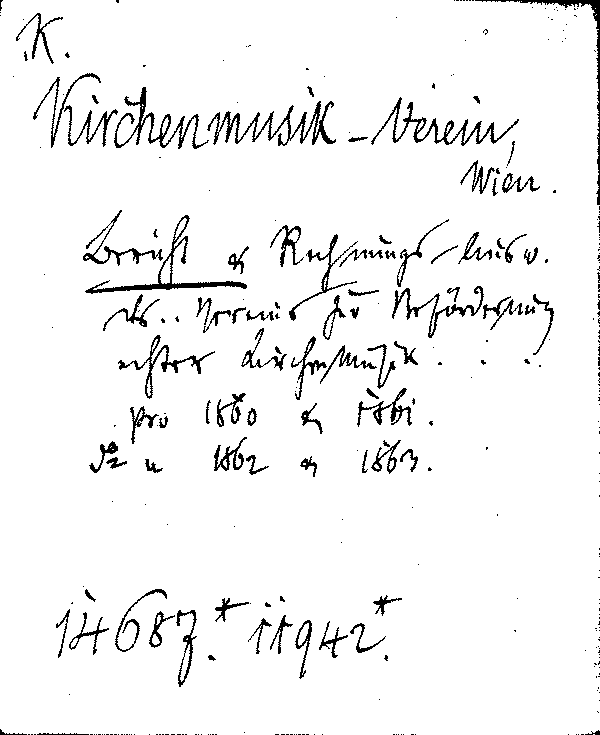 K.
Kirchenmusik-Verein,
Wien.
Bericht & Rechnungs-Ausw.
des.. Vereins für Beförderung
echter Kirchenmusik . . ..
pro 1860 & 1861.
do " 1862 & 1863.
14687.* 11942.*